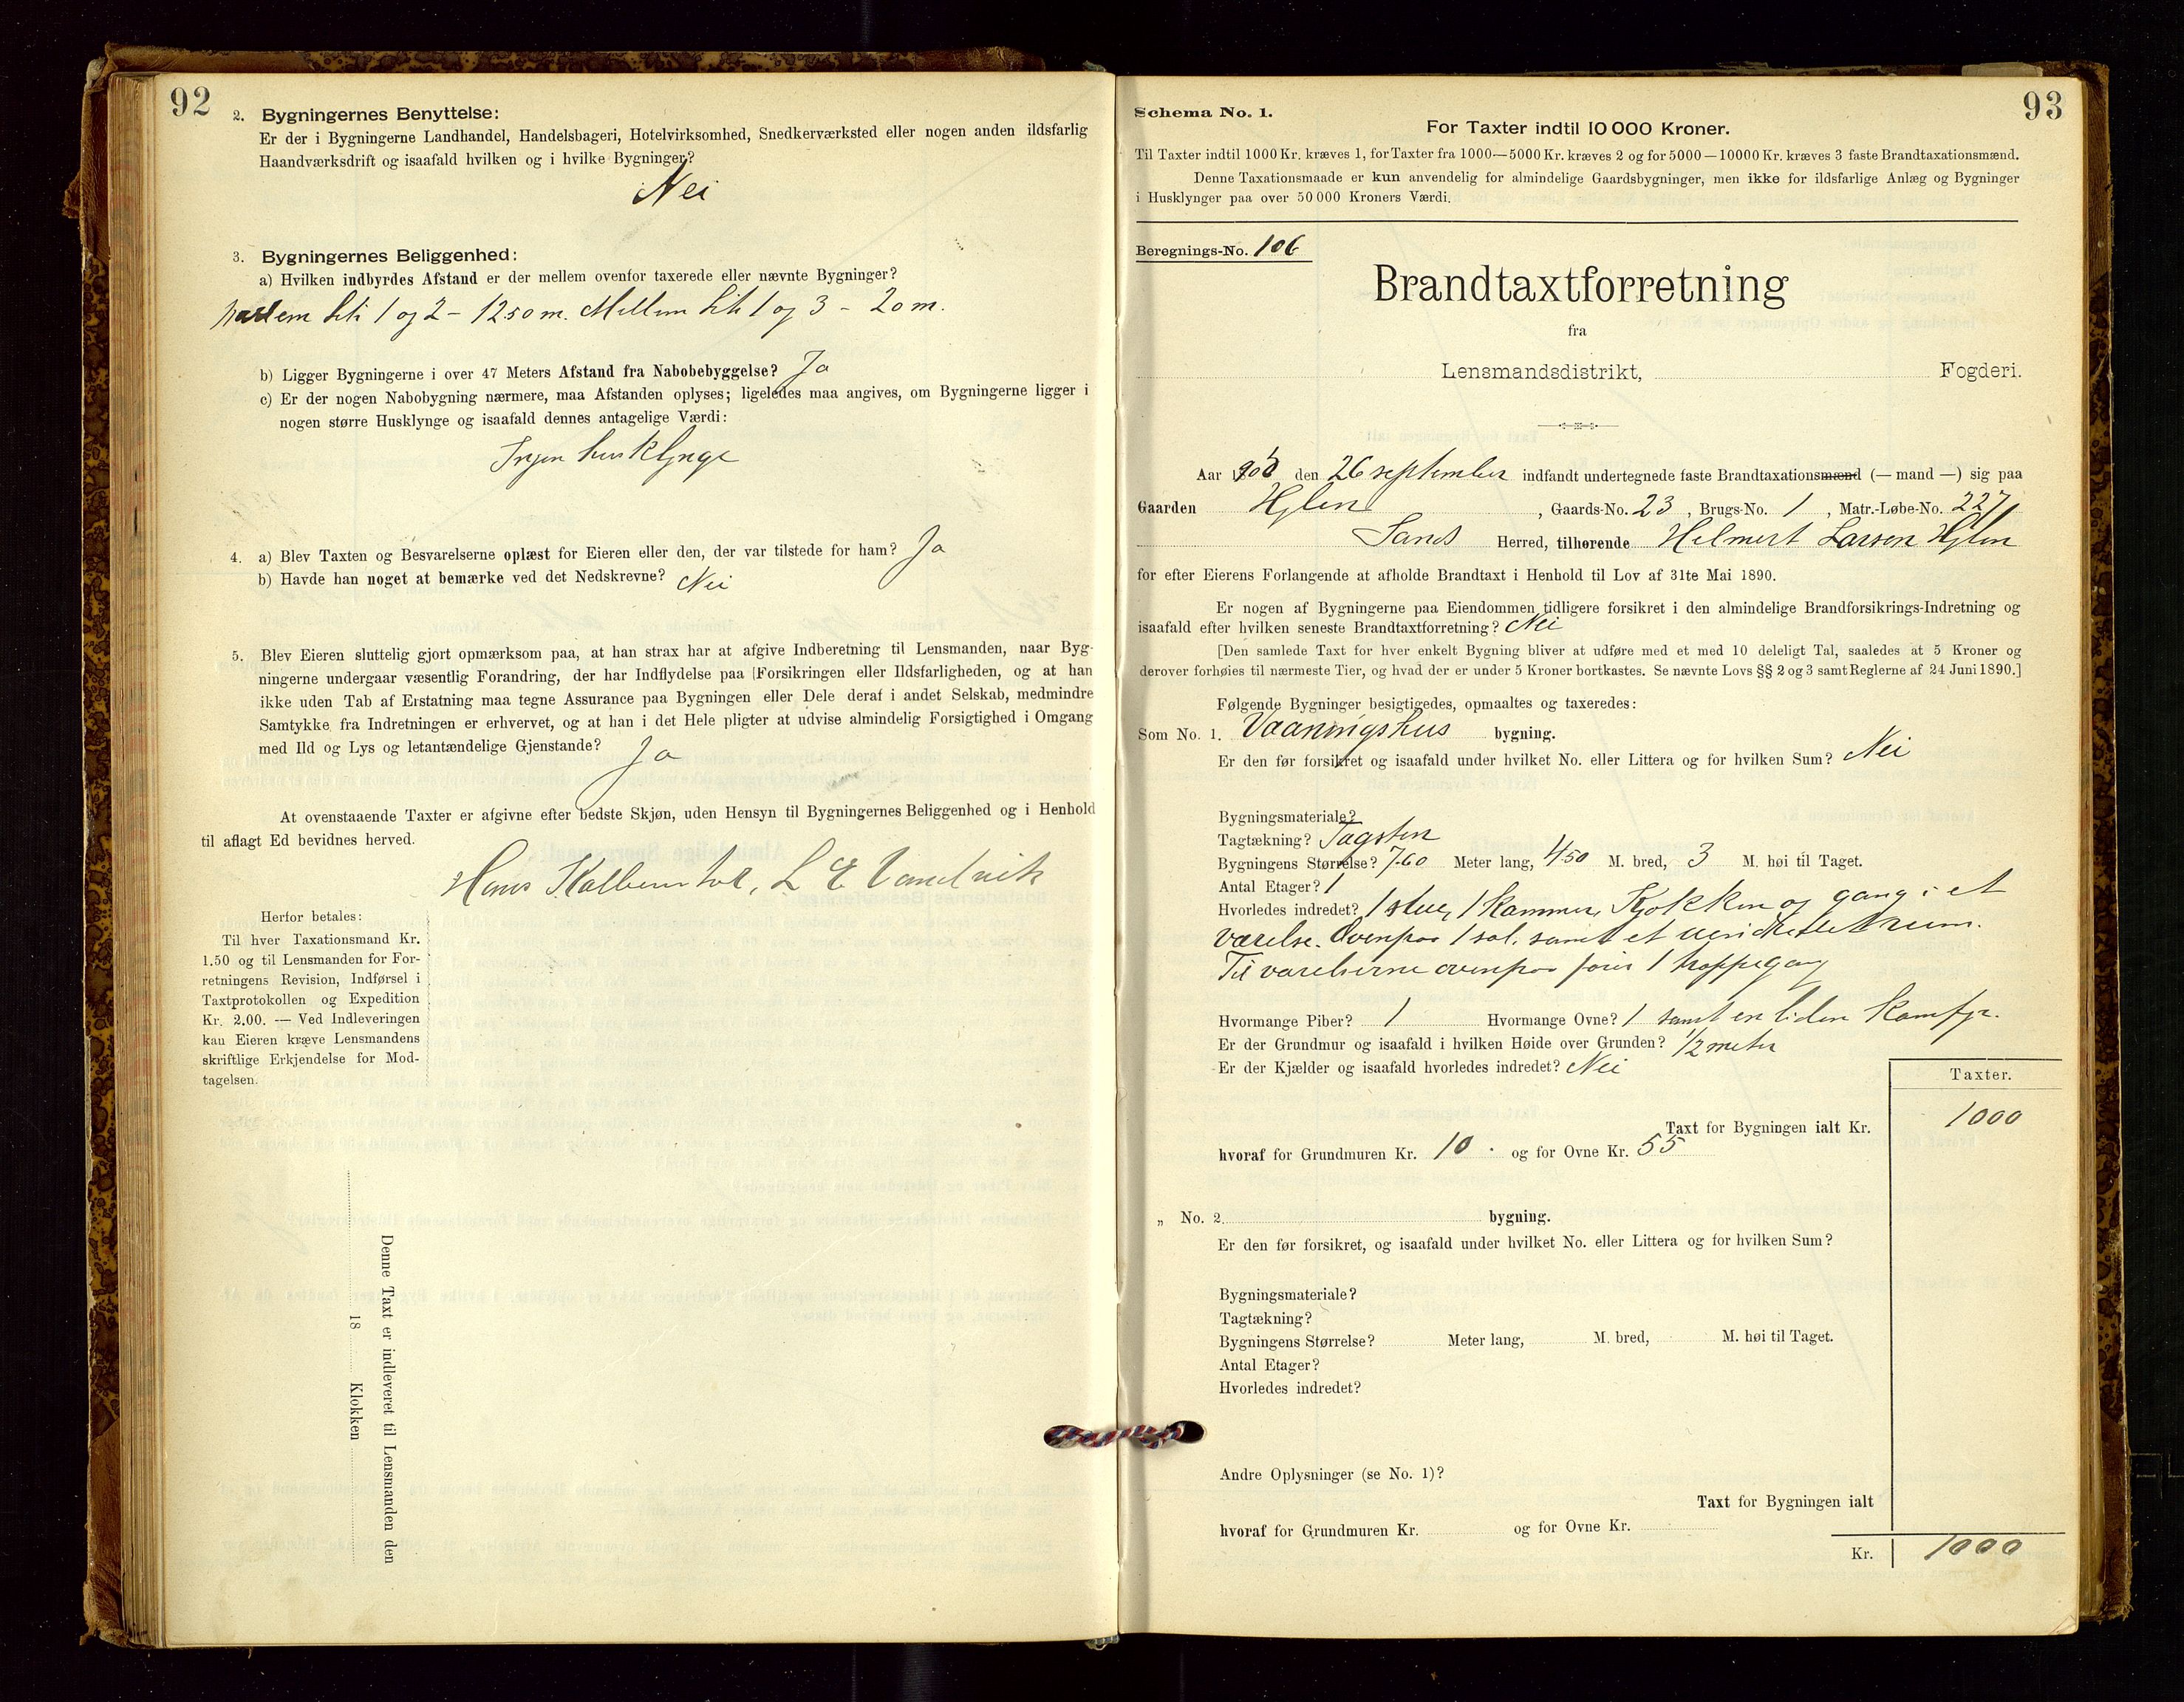 92
2. Bygningernes Benyttelse:
Er der i Bygningerne Landhandel, Handelsbageri, Hotelvirksomhed, Snedkerværksted eller nogen anden ildsfarlig
Haandværksdrift og isaafald hvilken og i hvilke Bygninger?
Nei
3. Bygningernes Beliggenhed:
a) Hvilken indbyrdes Afstand er der mellem ovenfor taxerede eller nævnte Bygninger?
Mellem Lit. 1 og 2 – 12.50 m. Mellem Lit. 1 og 3 – 20 m.
b) Ligger Bygningerne i over 47 Meters Afstand fra Nabobebyggelse? Ja
c) Er der nogen Nabobygning nærmere, maa Afstanden oplyses; ligeledes maa angives, om Bygningerne ligger i
nogen større Husklynge og isaafald dennes antagelige Værdi:
Ingen husklynge
4. a) Blev Taxten og Besvarelserne oplæst for Eieren eller den, der var tilstede for ham? Ja
b) Havde han noget at bemærke ved det Nedskrevne? Nei
5. Blev Eieren sluttelig gjort opmærksom paa, at han strax har at afgive Indberetning til Lensmanden, naar Byg-
ningerne undergaar væsentlig Forandring, der har Indflydelse paa Forsikringen eller Ildsfarligheden, og at han
ikke uden Tab af Erstatning maa tegne Assurance paa Bygningen eller Dele deraf i andet Selskab, medmindre
Samtykke fra Indretningen er erhvervet, og at han i det Hele pligter at udvise almindelig Forsigtighed i Omgang
med Ild og Lys og letantændelige Gjenstande? Ja
At ovenstaaende Taxter er afgivne efter bedste Skjøn, uden Hensyn til Bygningernes Beliggenhed og i Henhold
til aflagt Ed bevidnes herved.
Hans L E Vandvik
Herfor betales:
Til hver Taxationsmand Kr.
1.50 og til Lensmanden for For-
retningens Revision, Indførsel i
Taxtprotokollen og Expedition
Kr. 2.00. — Ved Indleveringen
kan Eieren kræve Lensmandens
skriftlige Erkjendelse for Mod-
tagelsen.
Denne Taxt er indleveret til Lensmanden den
18 Klokken
93
Schema No. 1.
For Taxter indtil 10 000 Kroner.
Til Taxter indtil 1000 Kr. kræves 1, for Taxter fra 1000—5000 Kr. kræves 2 og for 5000—10000 Kr. kræves 3 faste Brandtaxationsmænd.
Denne Taxationsmaade er kun anvendelig for almindelige Gaardsbygninger, men ikke for ildsfarlige Anlæg og Bygninger
i Husklynger paa over 50 000 Kroners Værdi.
Beregnings-No. 106
Brandtaxtforretning
fra
Lensmandsdistrikt, Fogderi.
Aar den 26 september indfandt undertegnede faste Brandtaxationsmænd (— mand —) sig paa
Gaarden Hylen, Gaards-No. 23, Brugs-No. 1, Matr.-Løbe-No. 227
Sands Herred, tilhørende Helmert Larsen Hylen
for efter Eierens Forlangende at afholde Brandtaxt i Henhold til Lov af 31te Mai 1890.
Er nogen af Bygningerne paa Eiendommen tidligere forsikret i den almindelige Brandforsikrings-Indretning og
isaafald efter hvilken seneste Brandtaxtforretning? Nei
[Den samlede Taxt for hver enkelt Bygning bliver at udføre med et med 10 deleligt Tal, saaledes at 5 Kroner og
derover forhøies til nærmeste Tier, og hvad der er under 5 Kroner bortkastes. Se nævnte Lovs §§ 2 og 3 samt Reglerne af 24 Juni 1890.]
Følgende Bygninger besigtigedes, opmaaltes og taxeredes:
Som No. 1. Vaaningshus bygning.
Er den før forsikret og isaafald under hvilket No. eller Littera og for hvilken Sum? Nei
Bygningsmateriale?
Tagtækning? Tagsten
Bygningens Størrelse? 7.60 Meter lang, 4.50 M. bred, 3 M. høi til Taget.
Antal Etager? 1
Hvorledes indredet? 1 stue, 1 kammer, Kjøkken og gang i et
værelse. Ovenpaa 1 sal, samt et uindredet rum.
Til værelserne ovenpaa fører 1 trappegang
Hvormange Piber? 1 Hvormange Ovne? 1 samt en liden Komfyr.
Er der Grundmur og isaafald i hvilken Høide over Grunden? 1/2 meter
Er der Kjælder og isaafald hvorledes indredet? Nei
Taxter.
Taxt for Bygningen ialt Kr. 1000
hvoraf for Grundmuren Kr. 10 . og for Ovne Kr. 55
„ No. 2 bygning.
Er den før forsikret, og isaafald under hvilket No. eller Littera og for hvilken Sum?
Bygningsmateriale?
Tagtækning?
Bygningens Størrelse? Meter lang, M. bred, M. høi til Taget.
Antal Etager?
Hvorledes indredet?
Andre Oplysninger (se No. 1)?
Taxt for Bygningen ialt
hvoraf for Grundmuren Kr. og for Ovne Kr.
Kr. 1000